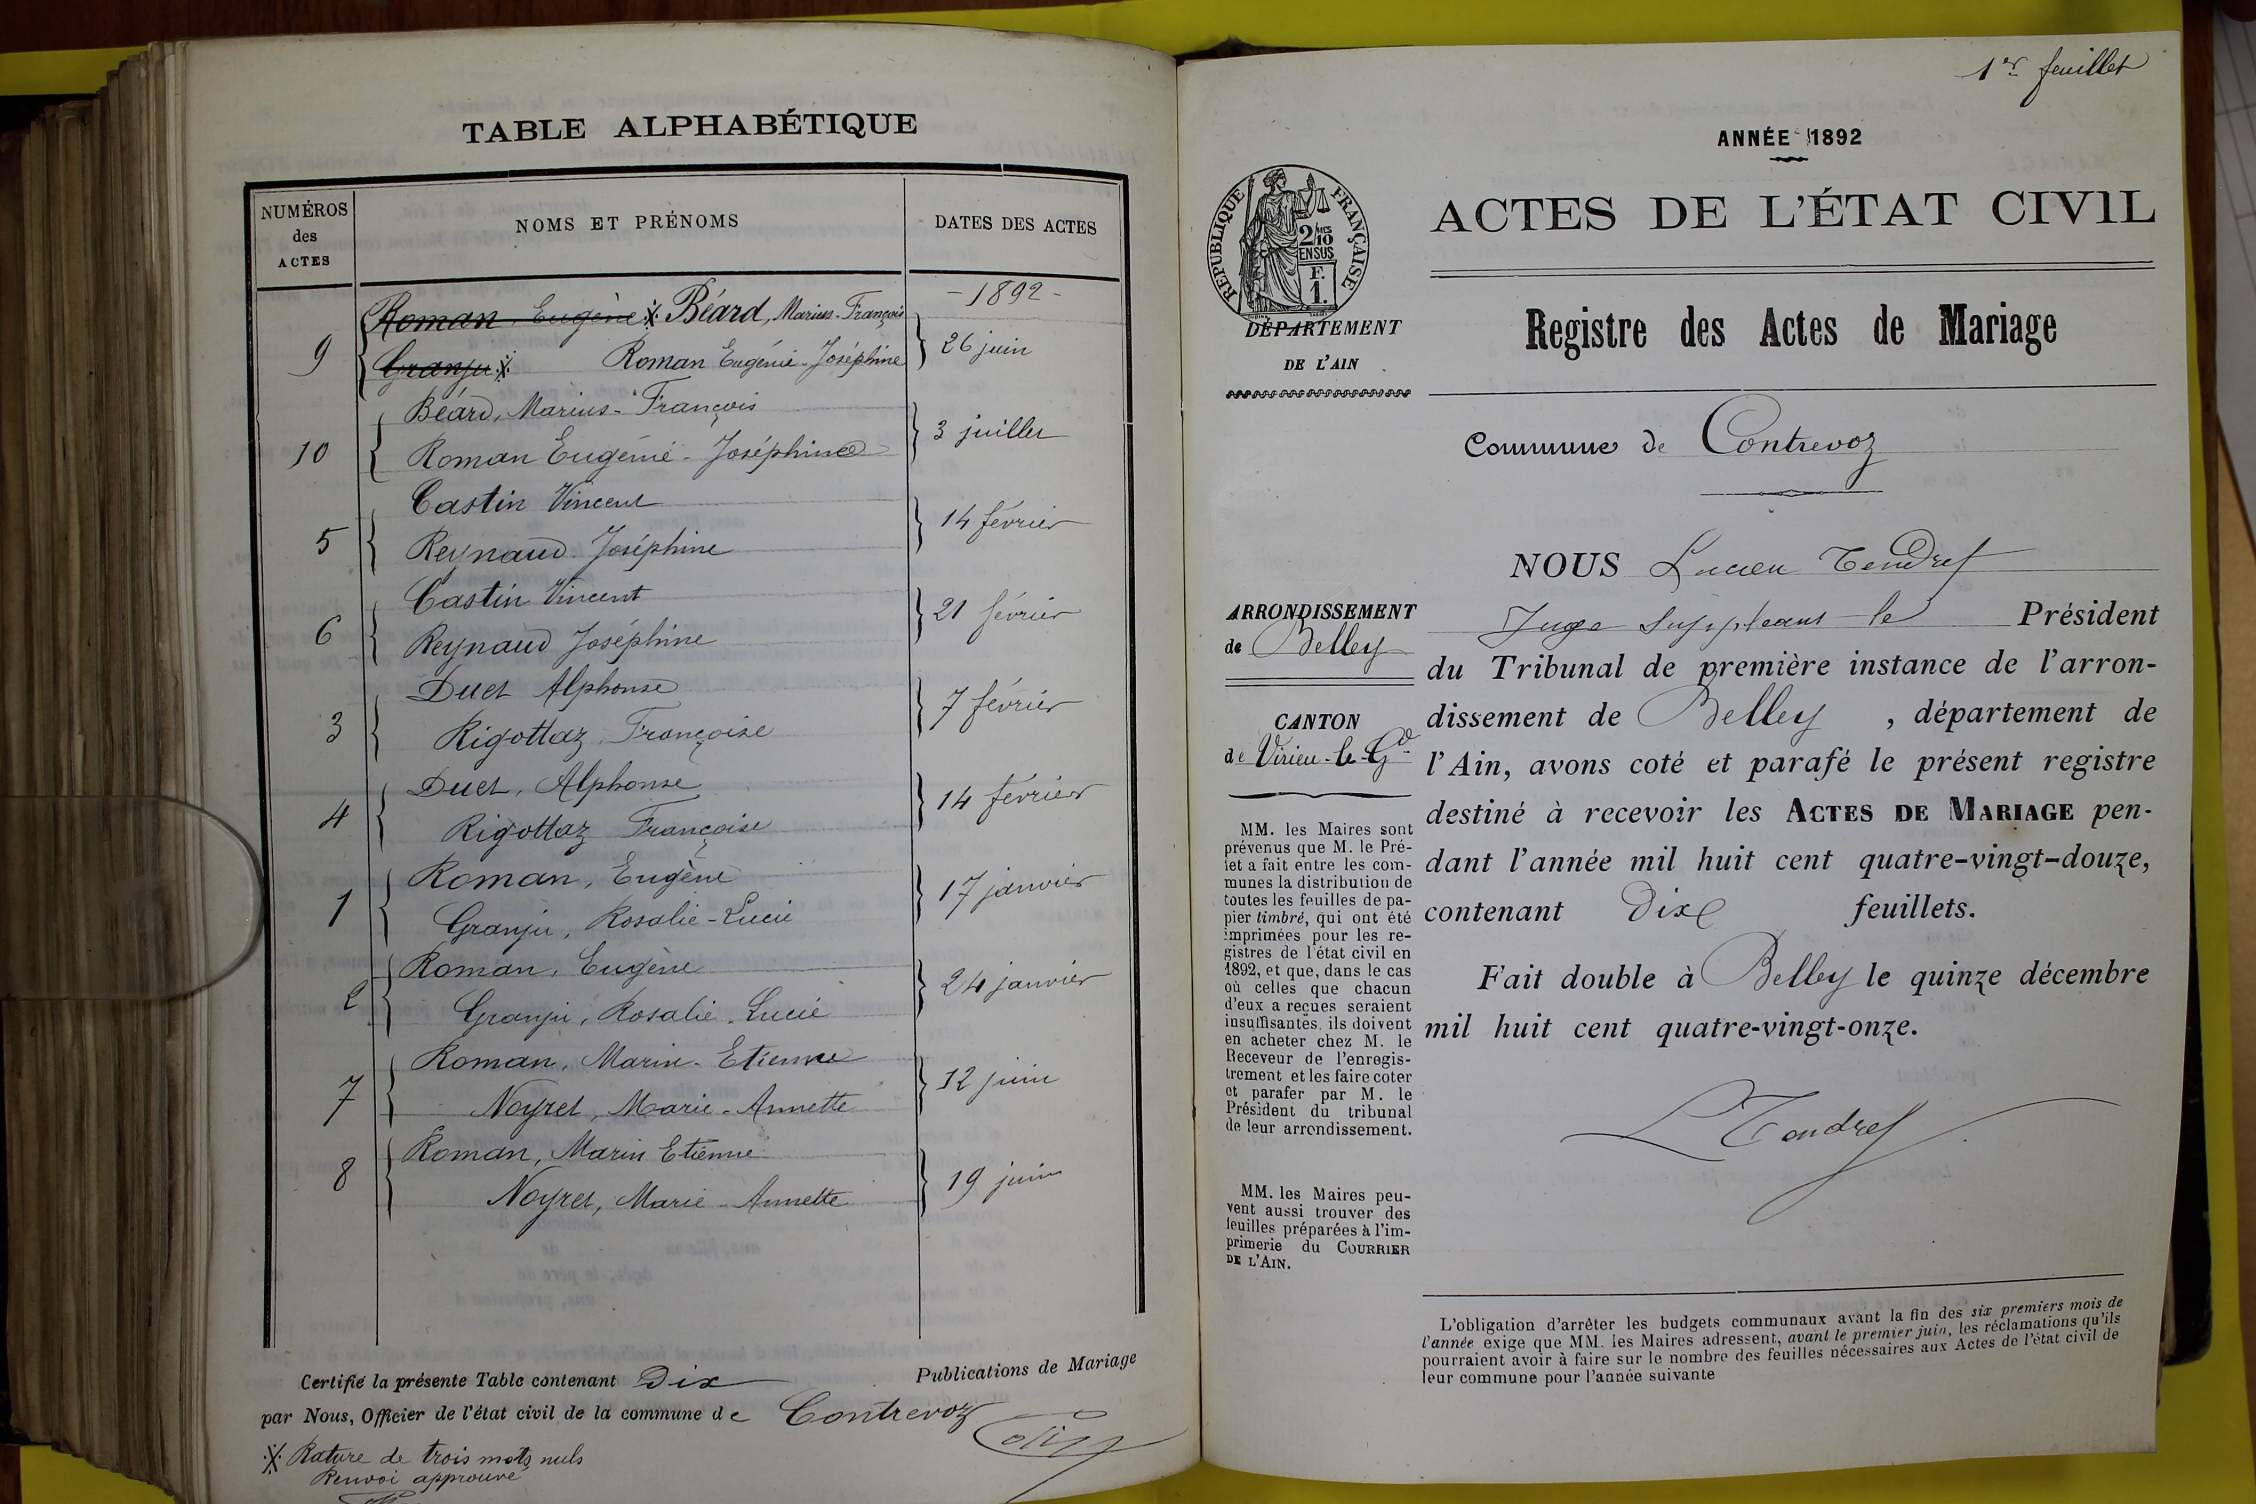 TABLE ALPHABÉTIQUE
NUMÉROS des ACTES
NOMS ET PRÉNOMS
DATES DES ACTES
- 1892 -
Roman, Eugène ※ Béard, Marius-François
9 Granju ※ Roman Eugénie-Joséphine 26 juin
Béard, Marius-François
10 Roman Eugénie-Joséphine 3 juillet
Castin Vincent
5 Reynaud Joséphine 14 février
Castin Vincent
6 Reynaud Joséphine 21 février
Duet Alphonse
3 Rigottaz Françoise 7 février
Duet, Alphonse
4 Rigottaz Françoise 14 février
Roman, Eugène
1 Granju, Rosalie-Lucie 17 janvier
Roman, Eugène
2 Granju, Rosalie-Lucie 24 janvier
Roman, Marin-Etienne
7 Noyret, Marie-Annette 12 juin
Roman, Marin Etienne
8 Noyret, Marie-Annette 19 juin
Certifié la présente Table contenant Dix Publications de Mariage
par Nous, Officier de l'état civil de la commune de Contrevoz
※ Rature de trois mots nuls
Renvoi approuvé
1er feuillet
ANNÉE 1892
ACTES DE L'ÉTAT CIVIL
RÉPUBLIQUE FRANÇAISE
2/10 EN SUS
F. 1.
DÉPARTEMENT
DE L'AIN
Registre des Actes de Mariage
Commune de Contrevoz
ARRONDISSEMENT
de Belley
CANTON
de Virieu-le-Gd
MM. les Maires sont
prévenus que M. le Pré-
fet a fait entre les com-
munes la distribution de
toutes les feuilles de pa-
pier timbré, qui ont été
imprimées pour les re-
gistres de l'état civil en
1892, et que, dans le cas
où celles que chacun
d'eux a reçues seraient
insuffisantes, ils doivent
en acheter chez M. le
Receveur de l'enregis-
trement et les faire coter
et parafer par M. le
Président du tribunal
de leur arrondissement.
MM. les Maires peu-
vent aussi trouver des
feuilles préparées à l'im-
primerie du COURRIER
DE L'AIN.
NOUS Lucien Tendret
Juge Suppléant le Président
du Tribunal de première instance de l'arron-
dissement de Belley, département de
l'Ain, avons coté et parafé le présent registre
destiné à recevoir les ACTES DE MARIAGE pen-
dant l'année mil huit cent quatre-vingt-douze,
contenant Dix feuillets.
Fait double à Belley le quinze décembre
mil huit cent quatre-vingt-onze.
L Tendret
L'obligation d'arrêter les budgets communaux avant la fin des six premiers mois de
l'année exige que MM. les Maires adressent, avant le premier juin, les réclamations qu'ils
pourraient avoir à faire sur le nombre des feuilles nécessaires aux Actes de l'état civil de
leur commune pour l'année suivante